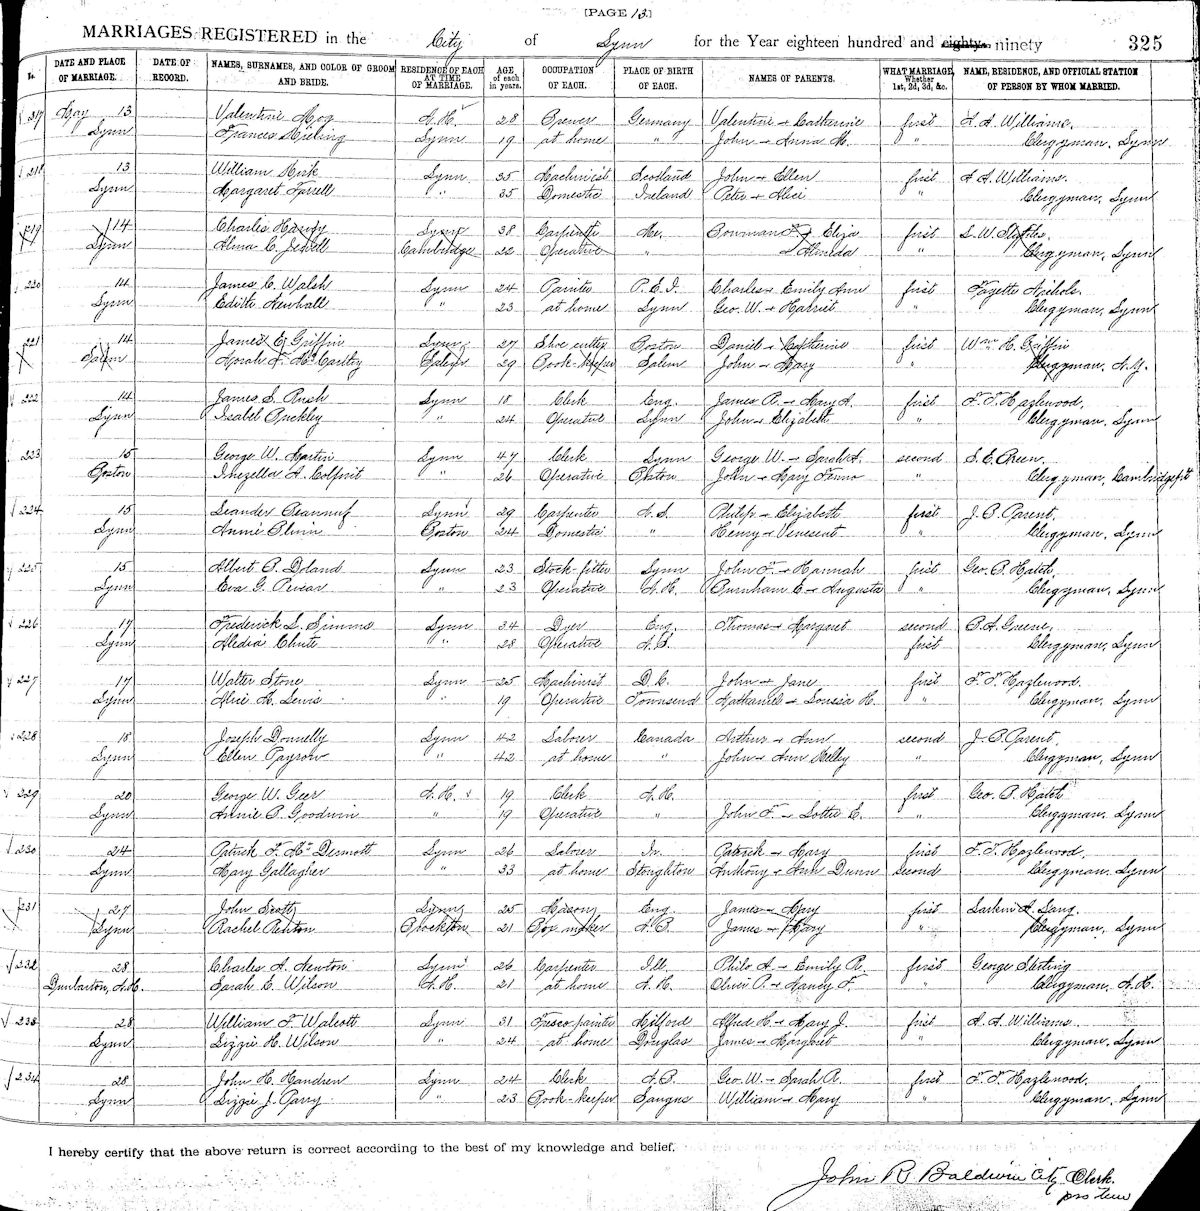 [PAGE 13]
MARRIAGES REGISTERED in the City of Lynn for the Year eighteen hundred and eighty- ninety 325
No. DATE AND PLACE OF MARRIAGE. DATE OF RECORD. NAMES, SURNAMES, AND COLOR OF GROOM AND BRIDE. RESIDENCE OF EACH AT TIME OF MARRIAGE. AGE of each in years. OCCUPATION OF EACH. PLACE OF BIRTH OF EACH. NAMES OF PARENTS. WHAT MARRIAGE, Whether 1st, 2d, 3d, &c. NAME, RESIDENCE, AND OFFICIAL STATION OF PERSON BY WHOM MARRIED.
217 May 13 Valentine Hog N.H. 28 Brewer Germany Valentine & Catherine first A. A. Williams,
Lynn Frances Lynn 19 at home " John & Anna M. " Clergyman, Lynn
218 13 William Kirk Lynn 35 Machinist Scotland John & Ellen first A. A. Williams.
Lynn Margaret Farrell " 35 Domestic Ireland Peter & Alice " Clergyman, Lynn
219 14 Charles Lynn 38 Carpenter Me. Bowman & Eliza first S. W.
Lynn Alma C. Jewell Cambridge 22 Operative " & " Clergyman, Lynn
220 14 James C. Walsh Lynn 24 Painter P.E.I. Charles & Emily Ann first Fayette Nichols.
Lynn Edith Newhall " 23 at home Lynn Geo. W. & Harriet " Clergyman, Lynn
221 14 James E. Griffin Lynn 27 Shoe cutter Boston Daniel & Catherine first Wm. H. Griffin
Salem Norah F. McCarthy Salem 29 Book-keeper Salem John & Mary " Clergyman, N.Y.
222 14 James S. Rush Lynn 18 Clerk Eng. James R. & Mary A. first F. F. Hazlewood,
Lynn Isabel Buckley " 24 Operative Lynn John & Elizabeth " Clergyman, Lynn
223 15 George W. Martin Lynn 47 Clerk Lynn George W. & Sarah A. second S. E. Breen,
Boston Inezella A. " 26 Operative Boston John & Mary Fenno " Clergyman, Cambridgeport
224 15 Leander Lynn 29 Carpenter N.S. Philip & Elizabeth first J. B. Parent,
Lynn Annie Boston 24 Domestic " Henry & " Clergyman, Lynn
225 15 Albert P. Doland Lynn 23 Stock-fitter Lynn John F. & Hannah first Geo. B. Hatch,
Lynn Eva G. Pevear " 23 Operative N.H. Burnham E. & Augusta " Clergyman, Lynn
226 17 Frederick L. Simms Lynn 34 Dyer Eng. Thomas & Margaret second B. A. Greene,
Lynn Chute " 28 Operative first Clergyman, Lynn
227 17 Walter Stone Lynn 25 Machinist D.C. John & Jane first F. F. Hazlewood.
Lynn Alice H. Lewis " 19 Operative Townsend Nathaniel & Louisa H. " Clergyman, Lynn
228 18 Joseph Donnelly Lynn 42 Laborer Canada Arthur & Ann second J. B. Parent.
Lynn Ellen Payrow " 42 at home " John & Ann Kelley " Clergyman, Lynn
229 20 George W. Geer N.H. 19 Clerk N.H. first Geo. B. Hatch
Lynn Annie B. Goodwin " 19 Operative " John F. & Lottie E. " Clergyman, Lynn
230 24 Patrick F. McDermott Lynn 26 Laborer Ir. Patrick & Mary first F. F. Hazlewood,
Lynn Mary Gallagher " 33 at home Stoughton Anthony & Ann Dunn second Clergyman, Lynn
231 27 John Scott Lynn 25 Mason Eng. James & Mary first Larkin A.
Lynn Rachel Ashton Brockton 21 Box maker N.B. James & Mary " Clergyman, Lynn
232 28 Charles A. Newton Lynn 26 Carpenter Ill. Philo A. & Emily R. first George Sterling
Dunbarton, N.H. Sarah C. Wilson N.H. 21 at home N.H. Oliver P. & Nancy F. " Clergyman, N.H.
233 28 William F. Walcott Lynn 31 Fresco painter Milford Alfred H. & Mary J. first A. A. Williams.
Lynn Lizzie H. Wilson " 24 at home Douglas James & Margaret " Clergyman, Lynn
234 28 John H. Handren Lynn 24 Clerk N.B. Geo. W. & Sarah A. first F. F. Hazlewood.
Lynn Lizzie J. Parry " 23 Book-keeper Saugus William & Mary " Clergyman, Lynn
I hereby certify that the above return is correct according to the best of my knowledge and belief.
John R Baldwin City Clerk.
pro tem